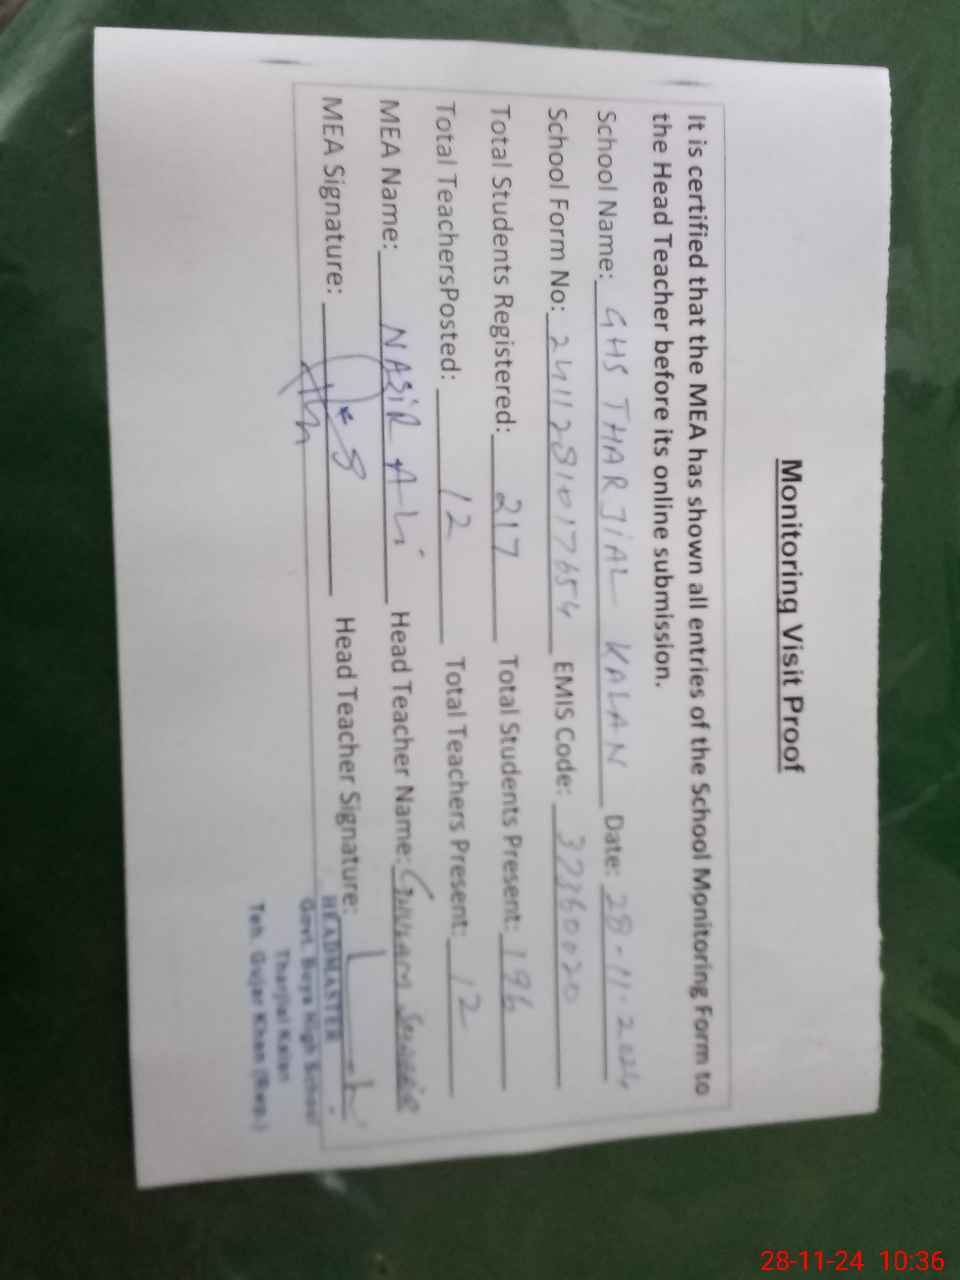 Monitoring Visit Proof
It is certified that the MEA has shown all entries of the School Monitoring Form to
the Head Teacher before its online submission.
School Name: GHS THARJIAL KALAN Date: 28-11-2024
School Form No: 2411281017654 EMIS Code: 37360020
Total Students Registered: 217 Total Students Present: 196
Total TeachersPosted: 12 Total Teachers Present: 12
MEA Name: NASIR ALI Head Teacher Name: GHULAM
MEA Signature: Head Teacher Signature:
HEADMASTER
Govt. Boys High School
Tharjial Kalan
Teh. Gujar Khan (Rwp.)
28-11-24 10:36